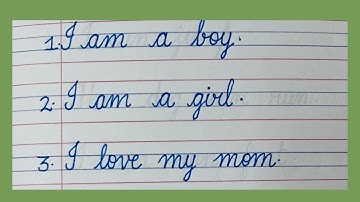 1. I am a boy.
2. I am a girl.
3. I love my mom.